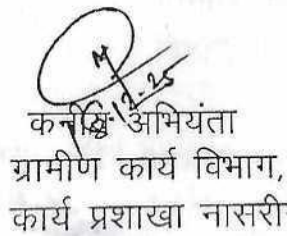 कनीय अभियंता
ग्रामीण कार्य विभाग,
कार्य प्रशाखा नासरी